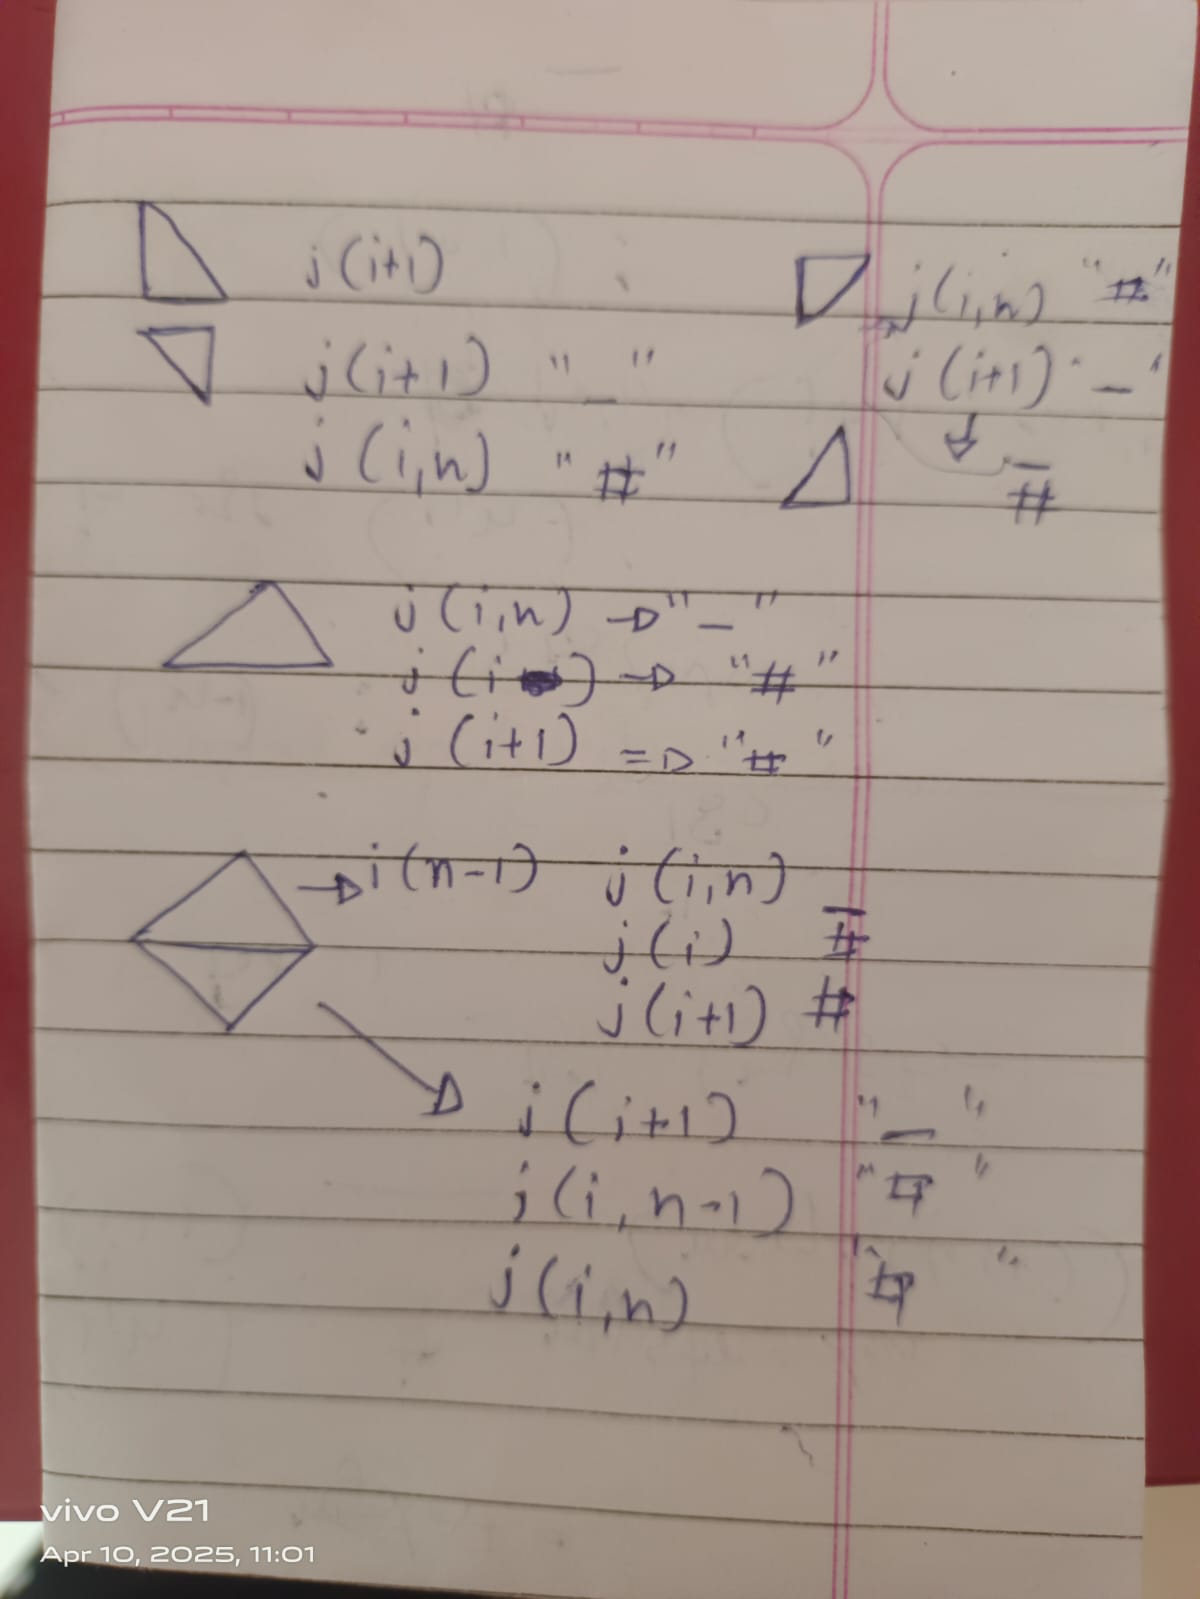 j(i+1)
j(i+1) "_"
j(i,n) "#"
j(i,n) "#"
j(i+1) "_"
_
#
j(i,n) → "_"
j(i ) → "#"
j(i+1) => "#"
→ i(n-1) j(i,n) _
j(i) #
j(i+1) #
j(i+1) "_"
j(i,n-1) "#"
j(i,n) "#"
vivo V21
Apr 10, 2025, 11:01